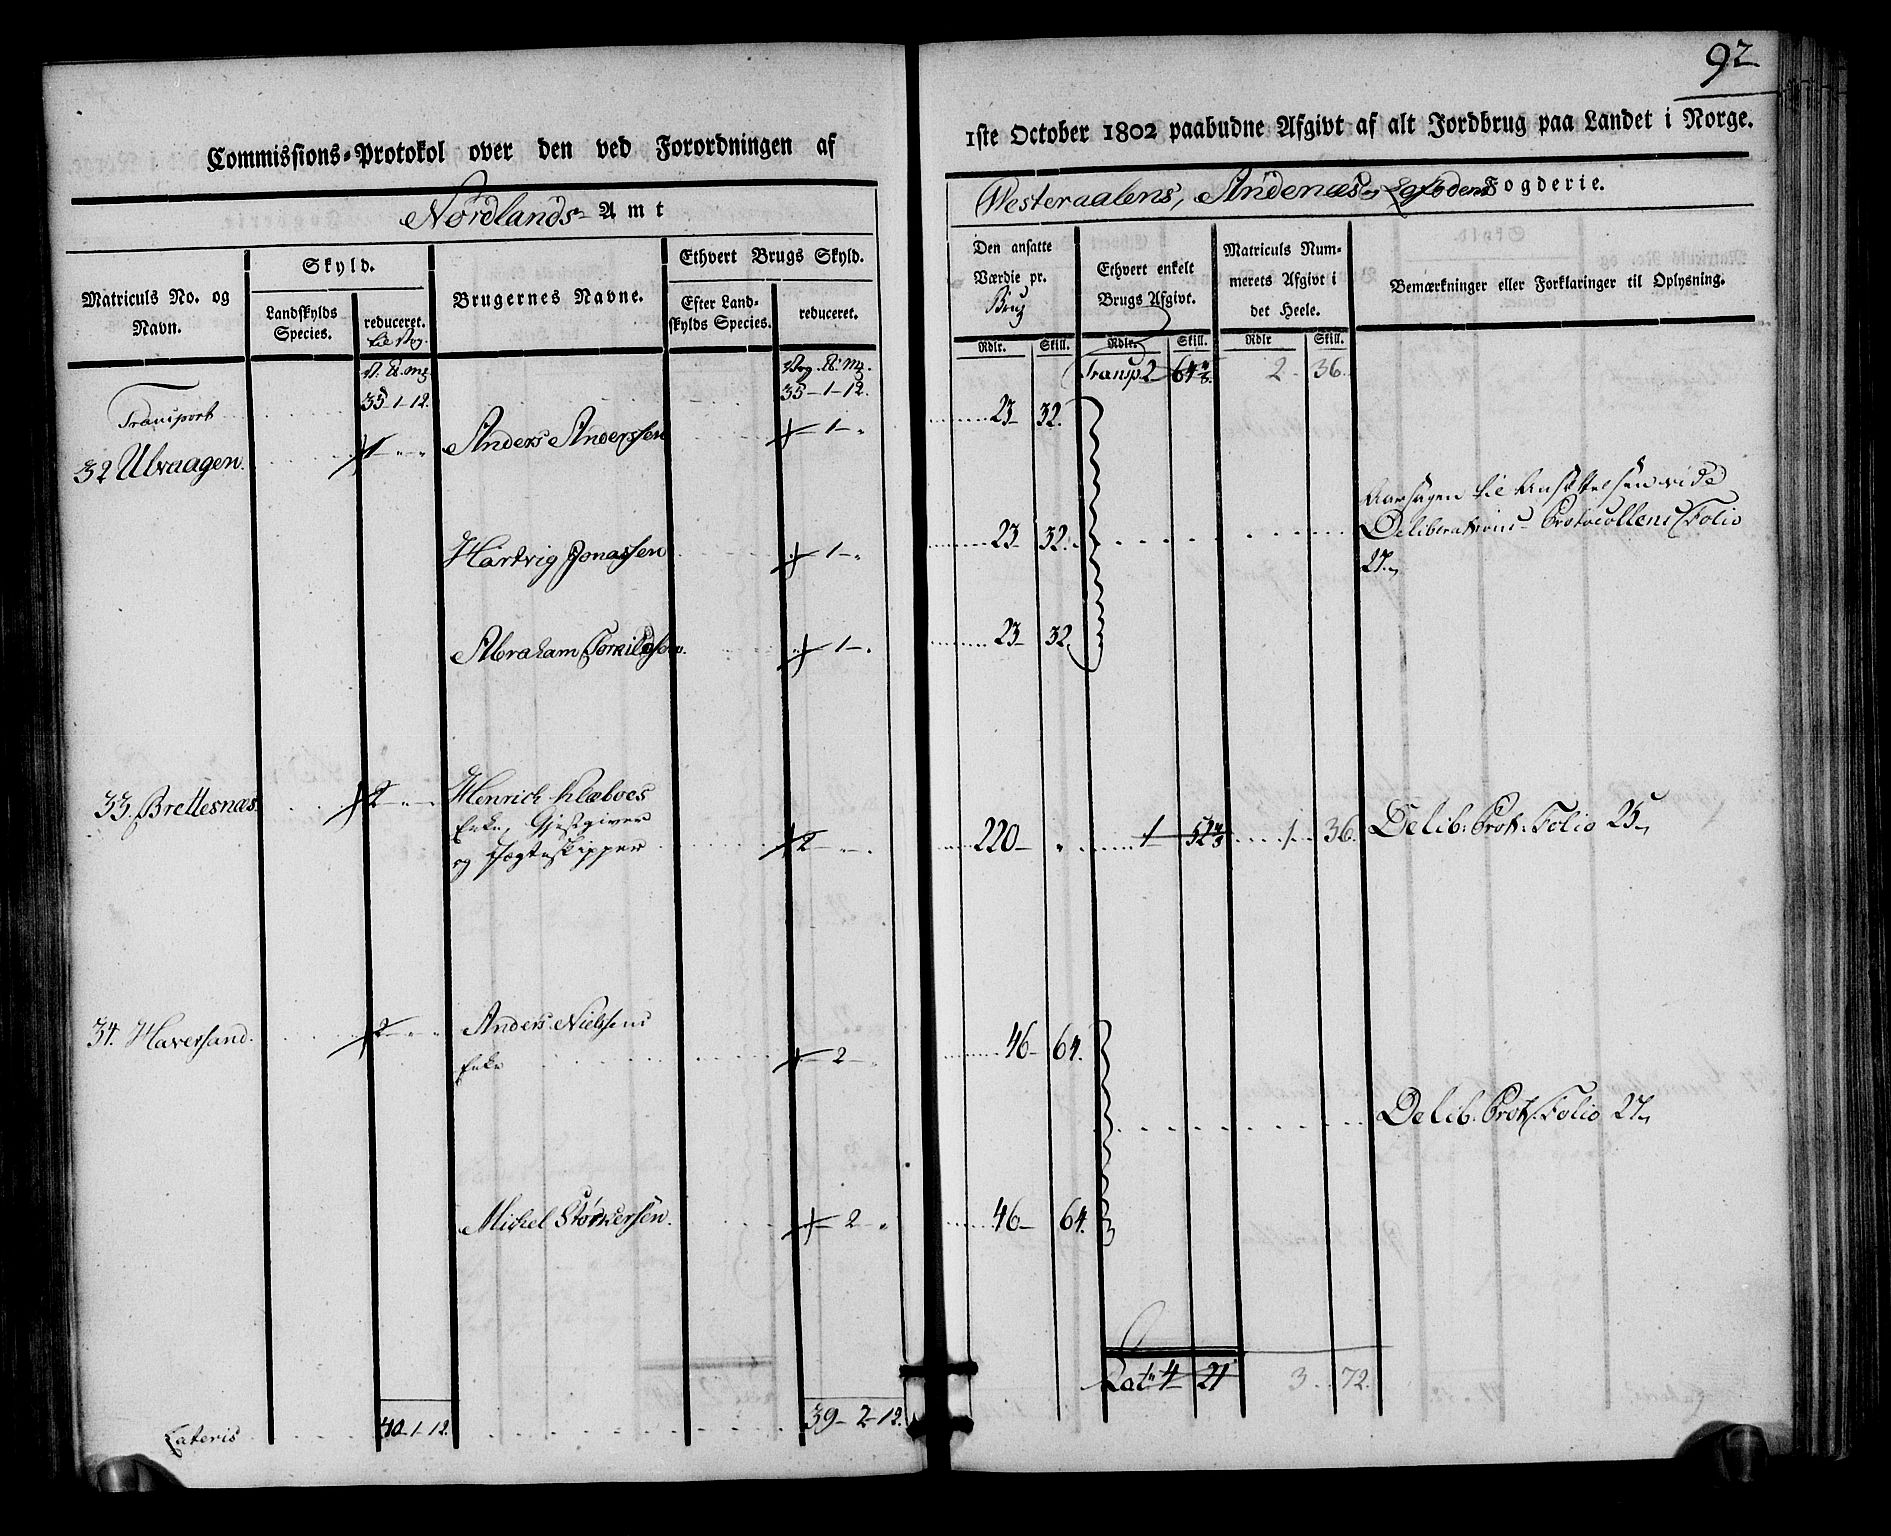 92
Commissions-Protokol over den ved Forordningen af
1ste October 1802 paabudne Afgivt af alt Jordbrug paa Landet i Norge.
Nordlands Amt
Westeraalens, Andenæs Lofodens Fogderie.
Matriculs No. og Navn.
Skyld.
Landskylds Species.
reduceret.
Brugernes Navne.
Ethvert Brugs Skyld.
Efter Landskylds Species.
reduceret.
Den ansatte Værdie pr. Brug
Rdlr. Skill.
Ethvert enkelt Brugs Afgivt.
Rdlr. Skill.
Matriculs Nummerets Afgivt i det Heele.
Rdlr Skill.
Bemærkninger eller Forklaringer til Oplysning.
Transport 35-1-12. 35-1-12. Transp 2 2 - 36.
32 Ulvaagen. 1 - " - " Anders Anderssen - 1 - " 23 - 32.
Hartvig Jonassen - 1 - " 23 - 32. Aarsagen til Ansættelsen vide
Deliberations-Protocollens Folio
27.
Abraham - 1 - " 23 - 32
33. Brettesnæs. 2 - " - Henrich Klæboes
Enke, Gjestgiver
og Jægteskipper 2 - " - " 220 - " 1 1 - 36. Delib: Prot: Folio 25
34. Haversand. 2 - " - " Anders Nielsens
Enke - 2 - " 46 - 64.
Delib. Prot. Folio 27
Michel Størkersen. - 2 - " 46 - 64.
Lat 4 21 3 - 72.
Lateris 40-1-12. 39-2-12.